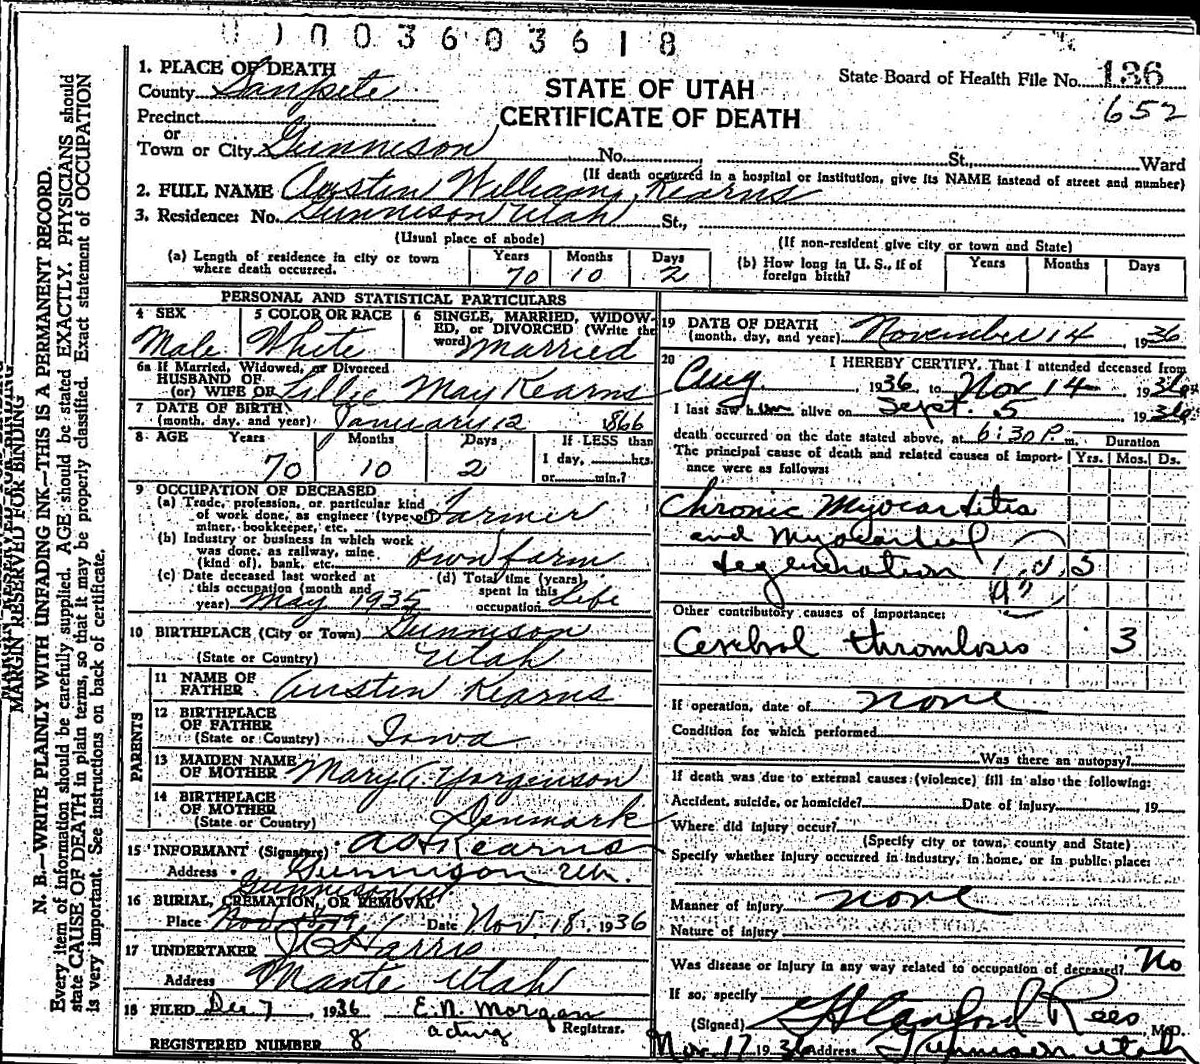 0 1 0 0 3 6 0 3 6 1 8
STATE OF UTAH
CERTIFICATE OF DEATH
State Board of Health File No. 136
652
1. PLACE OF DEATH
County Sanpete
Precinct
or
Town or City Gunnison No. St., Ward
(If death occurred in a hospital or institution, give its NAME instead of street and number)
2. FULL NAME Austin William Kearns
3. Residence: No. Gunnison Utah St.,
(Usual place of abode) (If non-resident give city or town and State)
(a) Length of residence in city or town where death occurred. Years 70 Months 10 Days 2
(b) How long in U. S., if of foreign birth? Years Months Days
PERSONAL AND STATISTICAL PARTICULARS
4 SEX Male
5 COLOR OR RACE White
6 SINGLE, MARRIED, WIDOWED, or DIVORCED (Write the word) Married
6a If Married, Widowed, or Divorced
HUSBAND OF
(or) WIFE OF Lillie May Kearns
7 DATE OF BIRTH
(month, day, and year) January 12 1866
8 AGE Years 70 Months 10 Days 2 If LESS than 1 day, hrs. or min.?
9 OCCUPATION OF DECEASED
(a) Trade, profession, or particular kind of work done, as engineer (type of) miner, bookkeeper, etc. Farmer
(b) Industry or business in which work was done, as railway, mine (kind of), bank, etc. own farm
(c) Date deceased last worked at this occupation (month and year) May 1935
(d) Total time (years) spent in this occupation Life
10 BIRTHPLACE (City or Town) Gunnison
(State or Country) Utah
PARENTS
11 NAME OF FATHER Austin Kearns
12 BIRTHPLACE OF FATHER (State or Country) Iowa
13 MAIDEN NAME OF MOTHER Mary A. Yorgenson
14 BIRTHPLACE OF MOTHER (State or Country) Denmark
15 INFORMANT (Signature) A O Kearns
Address Gunnison Ut.
Gunnison Ut
16 BURIAL, CREMATION, OR REMOVAL
Place Date Nov. 18, 1936
17 UNDERTAKER Harris
Address Manti Utah
18 FILED Dec 7, 1936 E. N. Morgan
acting Registrar.
REGISTERED NUMBER 8
19 DATE OF DEATH
(month, day, and year) November 14 1936
20 I HEREBY CERTIFY, That I attended deceased from
Aug. 1936, to Nov 14, 1936
I last saw him alive on Sept. 5 1936
death occurred on the date stated above, at 6:30 P. m. Duration
The principal cause of death and related causes of importance were as follows: Yrs. Mos. Ds.
Chronic Myocarditis
and Myocardial
degeneration 5
Other contributory causes of importance:
Cerebral thrombosis 3
If operation, date of none
Condition for which performed
Was there an autopsy?
If death was due to external causes (violence) fill in also the following:
Accident, suicide, or homicide? Date of injury 19
Where did injury occur?
(Specify city or town, county and State)
Specify whether injury occurred in industry, in home, or in public place:
Manner of injury none
Nature of injury
Was disease or injury in any way related to occupation of deceased? No
If so, specify
(Signed) Stanford Rees M.D.
Nov. 17 1936 Address Gunnison Utah
MARGIN RESERVED FOR BINDING
N. B.—WRITE PLAINLY WITH UNFADING INK—THIS IS A PERMANENT RECORD.
Every item of information should be carefully supplied. AGE should be stated EXACTLY. PHYSICIANS should
state CAUSE OF DEATH in plain terms, so that it may be properly classified. Exact statement of OCCUPATION
is very important. See instructions on back of certificate.